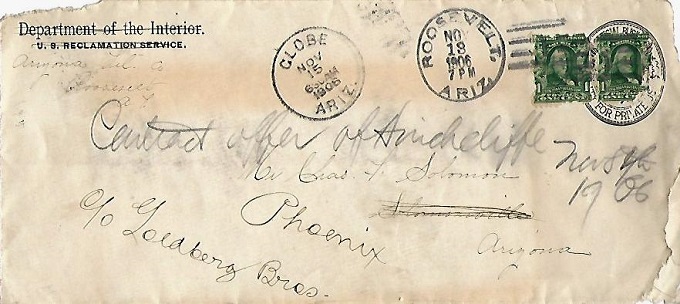 Department of the Interior.
U. S. RECLAMATION SERVICE.
Arizona
Roosevelt
GLOBE
NOV
15
1906
ARIZ.
ROOSEVELT.
NOV
13
1906
7 PM
ARIZ.
1
1
1
FOR PRIVATE
Contract offer of Hinchcliffe
Nov 8th
1906
Mr Chas. F. Solomon
Solomonville
Phoenix
Arizona
c/o Goldberg Bros.